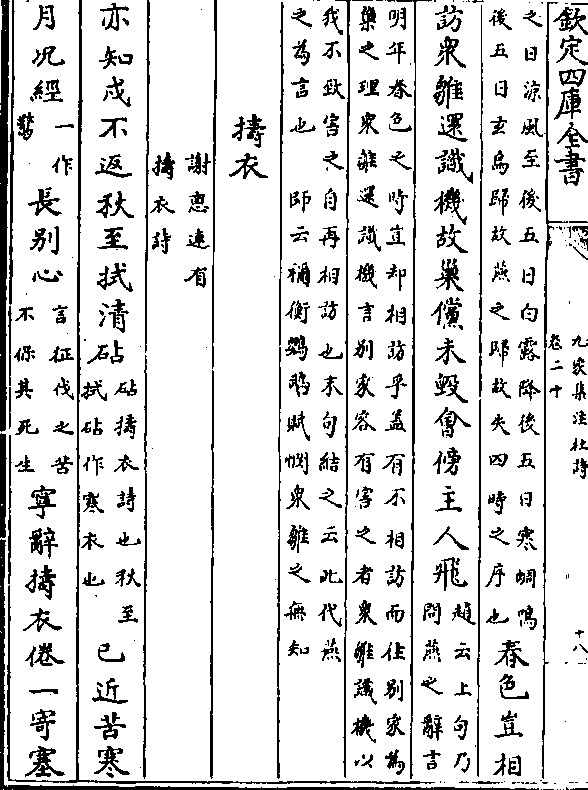 欽定四庫全書
九家集注杜詩
卷二十
十八
之日涼風至後五日白露降後五日寒蜩鳴
後五日玄鳥歸故燕之歸故失四時之序也
春色豈相
訪衆雛還識機故巢儻未毀會傍主人飛
趙云上句乃
問燕之辭言
明年春色之時豈却相訪乎盖有不相訪而住别家為
巢之理衆雛還識機言别家容有害之者衆雛識機以
我不致害之自再相訪也末句結之云此代燕
之為言也 師云禰衡鸚鵡賦憫衆雛之無知
擣衣
謝惠連有
擣衣詩
亦知戍不返秋至拭清砧
砧擣衣詩也秋至
拭砧作寒衣也
已近苦寒
月况經
一作
驚
長别心
言征伐之苦
不保其死生
寧辭擣衣倦一寄塞